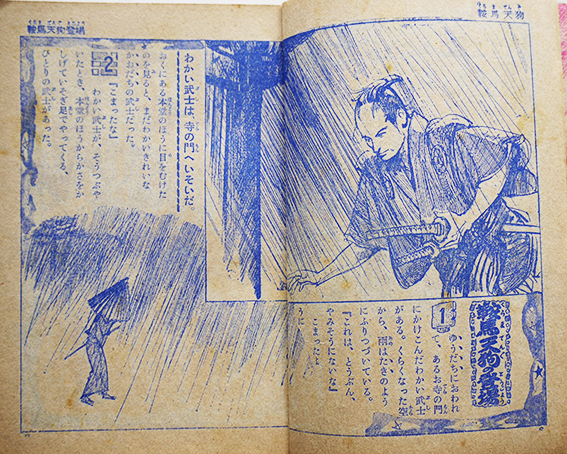 鞍馬天狗
鞍馬天狗の登場
1
ゆうだちにおわれ
て、あるお寺の門
にかけこんだわかい武士
がある。くらくなった空
から、雨はたきのよう
にふりつづいている。
『これは、とうぶん、
やみそうにないな』
こまったよ
うに
鞍馬天狗登場
わかい武士は、寺の門へいそいだ。
おくにある本堂のほうに目をむけた
のを見ると、まだわかいきれいな
かおだちの武士だった。
2
『こまったな』
わかい武士が、そうつぶや
いたとき、本堂のほうからかさをか
しげていそぎ足でやってくる、
ひとりの武士があった。